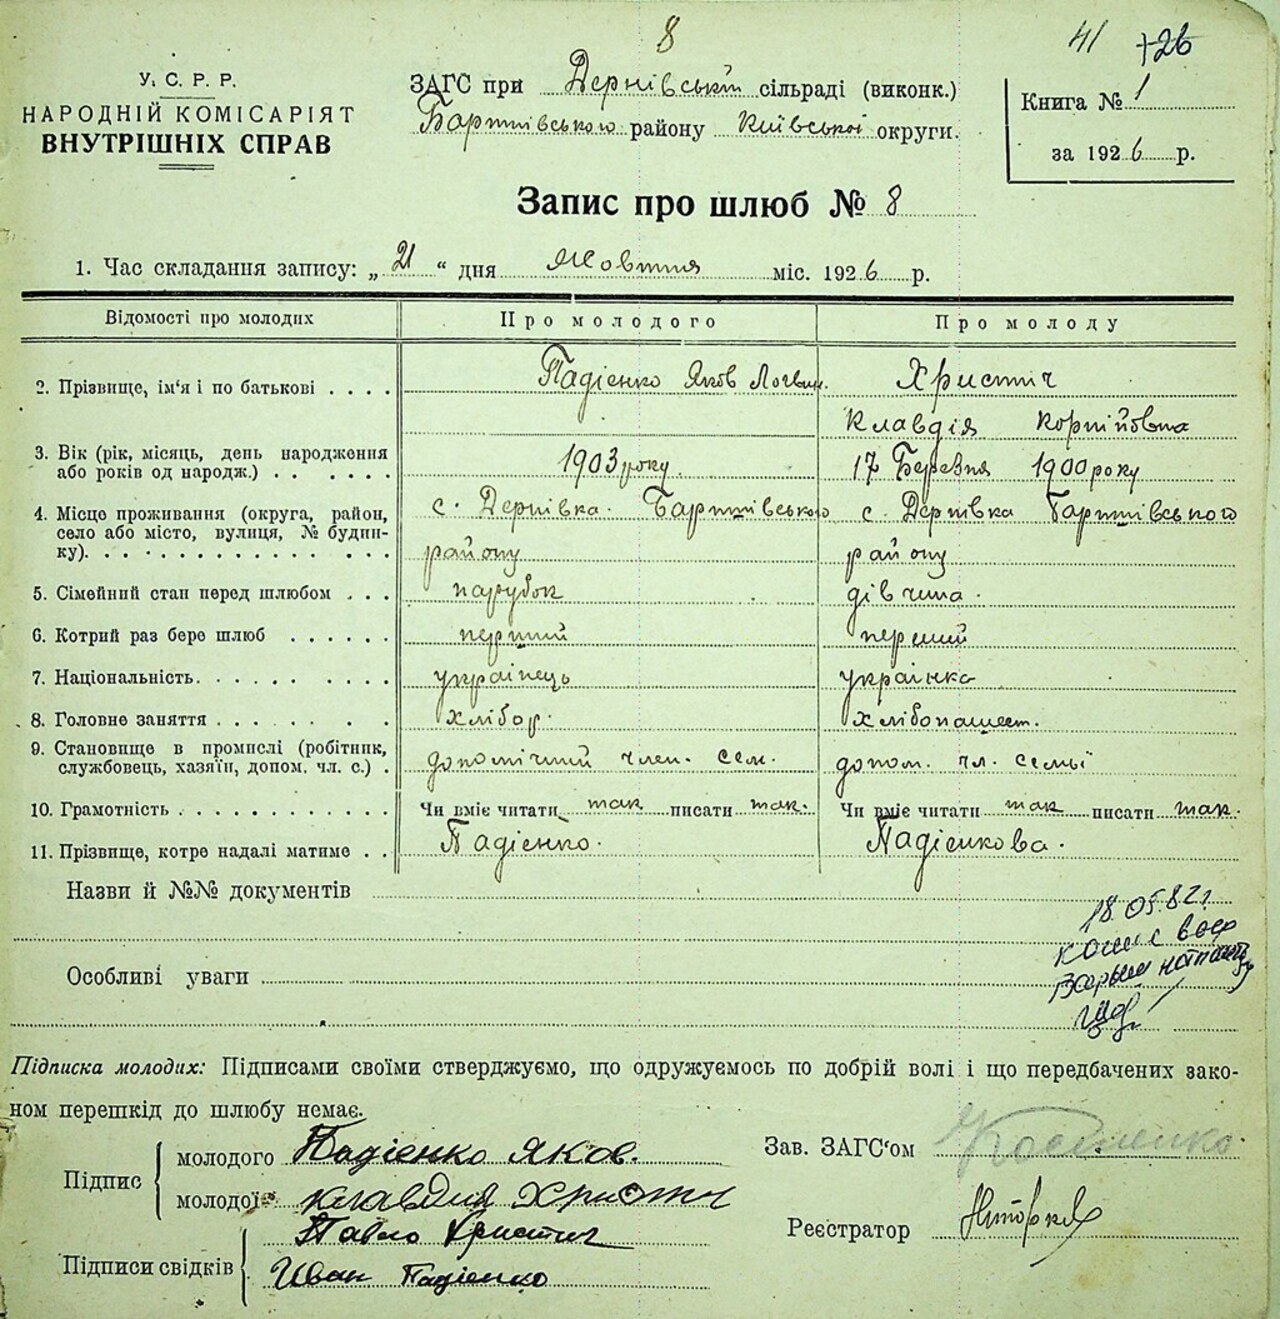 8
41 +26
У. С. Р. Р.
НАРОДНІЙ КОМІСАРІЯТ
ВНУТРІШНІХ СПРАВ
ЗАГС при Дернівській сільраді (виконк.)
Баришівського району Київської округи.
Книга № 1
за 1926 р.
Запис про шлюб № 8
1. Час складання запису: „21“ дня Жовтня міс. 1926 р.
Відомості про молодих Про молодого Про молоду
2. Прізвище, ім‘я і по батькові . . . . Падієнко Яков Логвин. Христич
Клавдія Корнійовна
3. Вік (рік, місяць, день народження
або років од народж.) . . . . . . 1903 року. 17 Березня 1900 року
4. Місце проживання (округа, район,
село або місто, вулиця, № будин-
ку). . . . . . . . . . . . . . .
с. Дернівка. Баришівського с. Дернівка Баришівського
району району
5. Сімейний стан перед шлюбом . . . парубок дівчина.
6. Котрий раз бере шлюб . . . . . . перший перший
7. Національність. . . . . . . . . . українець українка
8. Головне заняття . . . . . . . . хлібор. хлібопашест.
9. Становище в промислі (робітник,
службовець, хазяїн, допом. чл. с.) . допомічний член. сем. допом. чл. семьї
10. Грамотність . . . . . . . . . . . . Чи вміє читати так писати так. Чи вміє читати так писати так.
11. Прізвище, котре надалі матиме . . Падієнко. Падієнкова.
Назви й №№ документів
18.05.82г.
Особливі уваги
Підписка молодих: Підписами своїми стверджуємо, що одружуємось по добрій волі і що передбачених зако-
ном перешкід до шлюбу немає.
Підпис
молодого Падієнко Яков.
молодої Клавдия Христич
Підписи свідків
Павло Христич
Иван Падієнко
Зав. ЗАГС‘ом
Реєстратор